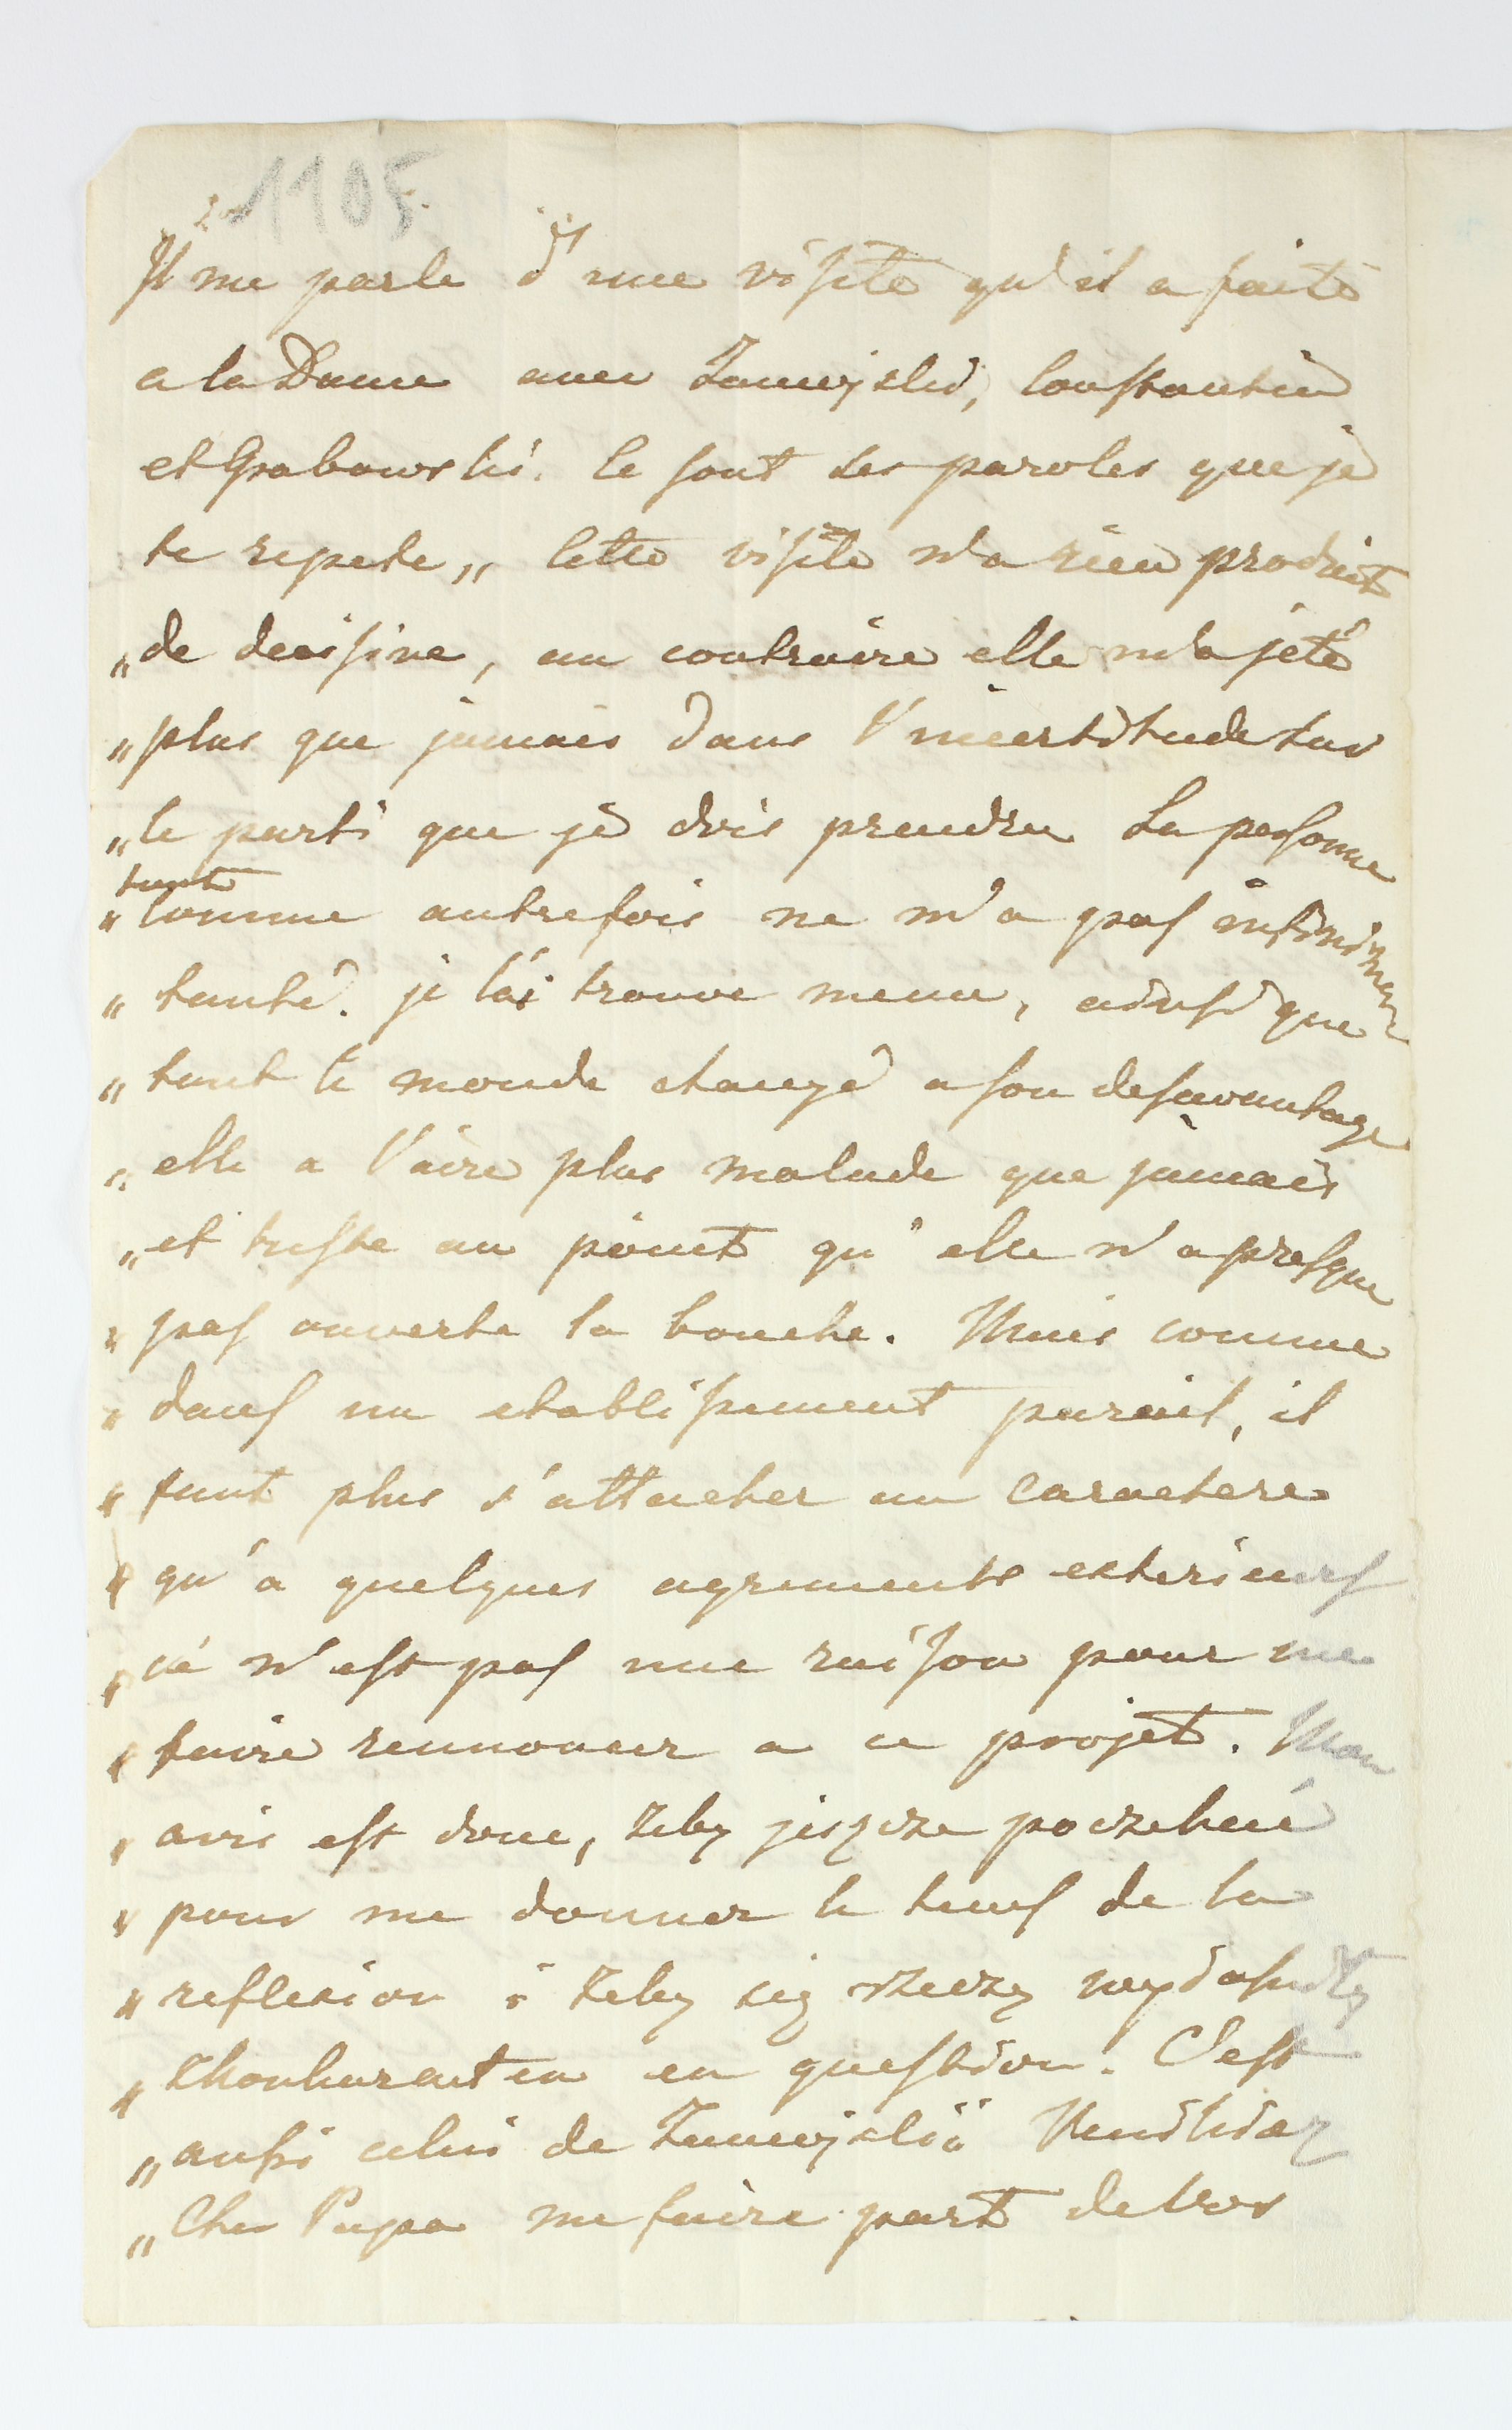 1105.
Il me parle d'une visite qu'il a faite
a la Dame avec Zamojski, Constantin
et Grabowski. Ce sont ses paroles que je
te repete „ Cette visite n'a rien produit
„ de decisive, au contraire elle m'a jeté
„ plus que jamais dans l'incertitude sur
„ le parti que je dois prendre La personne
tout
„ comme autrefois ne m'a pas infiniment
„ tenté. je l'ai trouve meme, ainsi que
„ tout le monde changé a son desavantage
„ elle a l'aire plus malade que jamais
„ et triste au point qu'elle n'a presque
„ pas ouverte la bouche. Mais comme
„ dans un etablissement pareil, il
„ faut plus s'attacher au caractere
„ qu'a quelques agrements exterieurs
„ ce n'est pas une raison pour me
„ faire rennoncer a ce projet. Mon
„ avis est donc, żeby jeszcze poczekać
„ pour me donner le tems de la
„ reflexion i żeby się rzeczy wyjaśniły
„ en question. C'est
„ aussi celui de Zamojski
„ Cher Papa me faire part de vos